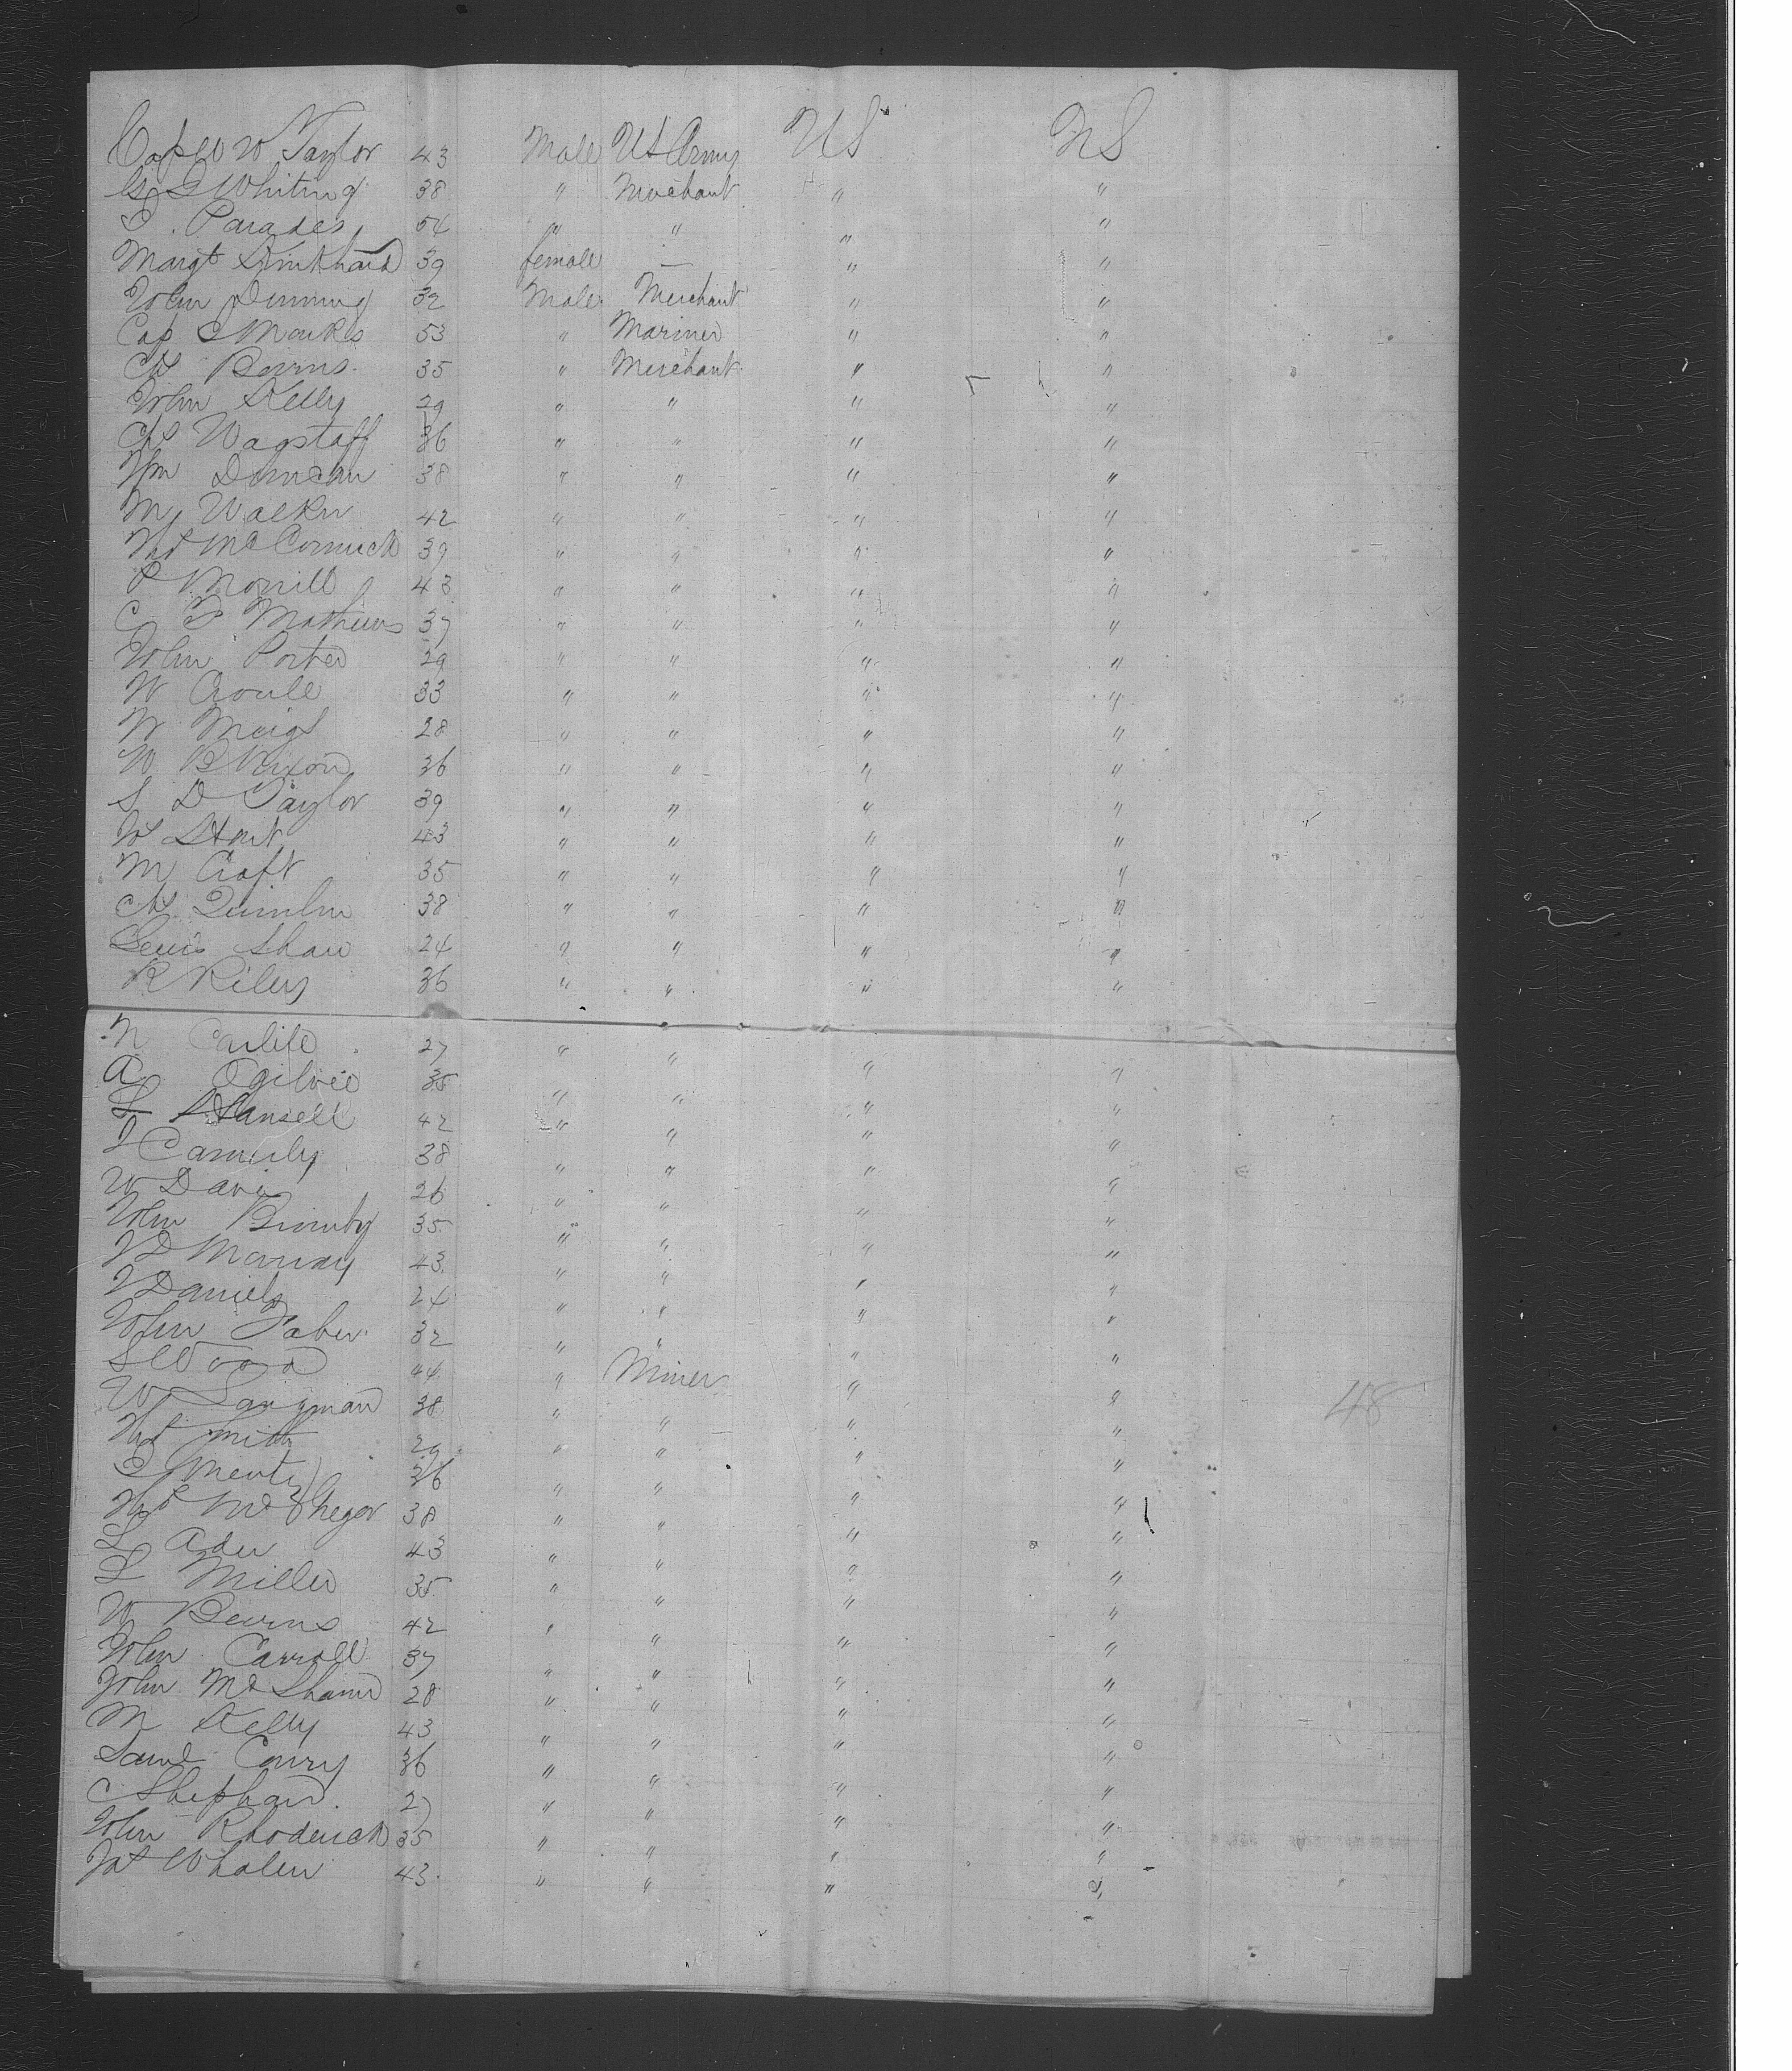 Cap W W Taylor 43 Male US Army US US
G S Whiting 38 " Merchant " "
Parades 54 " " " "
Margt Kinkhard 39 female — " "
John Dinning 32 Male Merchant " "
Cap S Marks 53 " Mariner " "
Chs Barns 35 " Merchant " "
John Kelly 29 " " " "
Chs Wagstaff 36 " " " "
Wm Duncan 38 " " " "
M Walker 42 " " " "
McCormick 39 " " " "
P Morrill 43 " " " "
C F Mathews 37 " " " "
John Porter 29 " " " "
W 33 " " " "
W Meigs 28 " " " "
W B Nixon 36 " " " "
S D Taylor 39 " " " "
43 " " " "
M Craft 35 " " " "
Chs Quinlan 38 " " " "
Lewis Shaw 24 " " " "
R Riley 36 " " " "
N Carlile 27 " " " "
A Ogilvie 35 " " " "
L Hansell 42 " " " "
38 " " " "
W Davis 26 " " " "
John 35 " " " "
Murray 43 " " " "
J Daniels 24 " " " "
John Faber 32 " " " "
S Wood 44 " Miner " "
W 38 " " " " 48
Smith 29 " " " "
36 " " " "
McGregor 38 " " " "
L Ader 43 " " " "
L Miller 35 " " " "
W Bevins 42 " " " "
John Carroll 37 " " " "
John McShane 28 " " " "
M Kelly 43 " " " "
Saml Conry 36 " " " "
C Shephard 27 " " " "
John Rhoderick 35 " " " "
Jas Whalen 43 " " " "